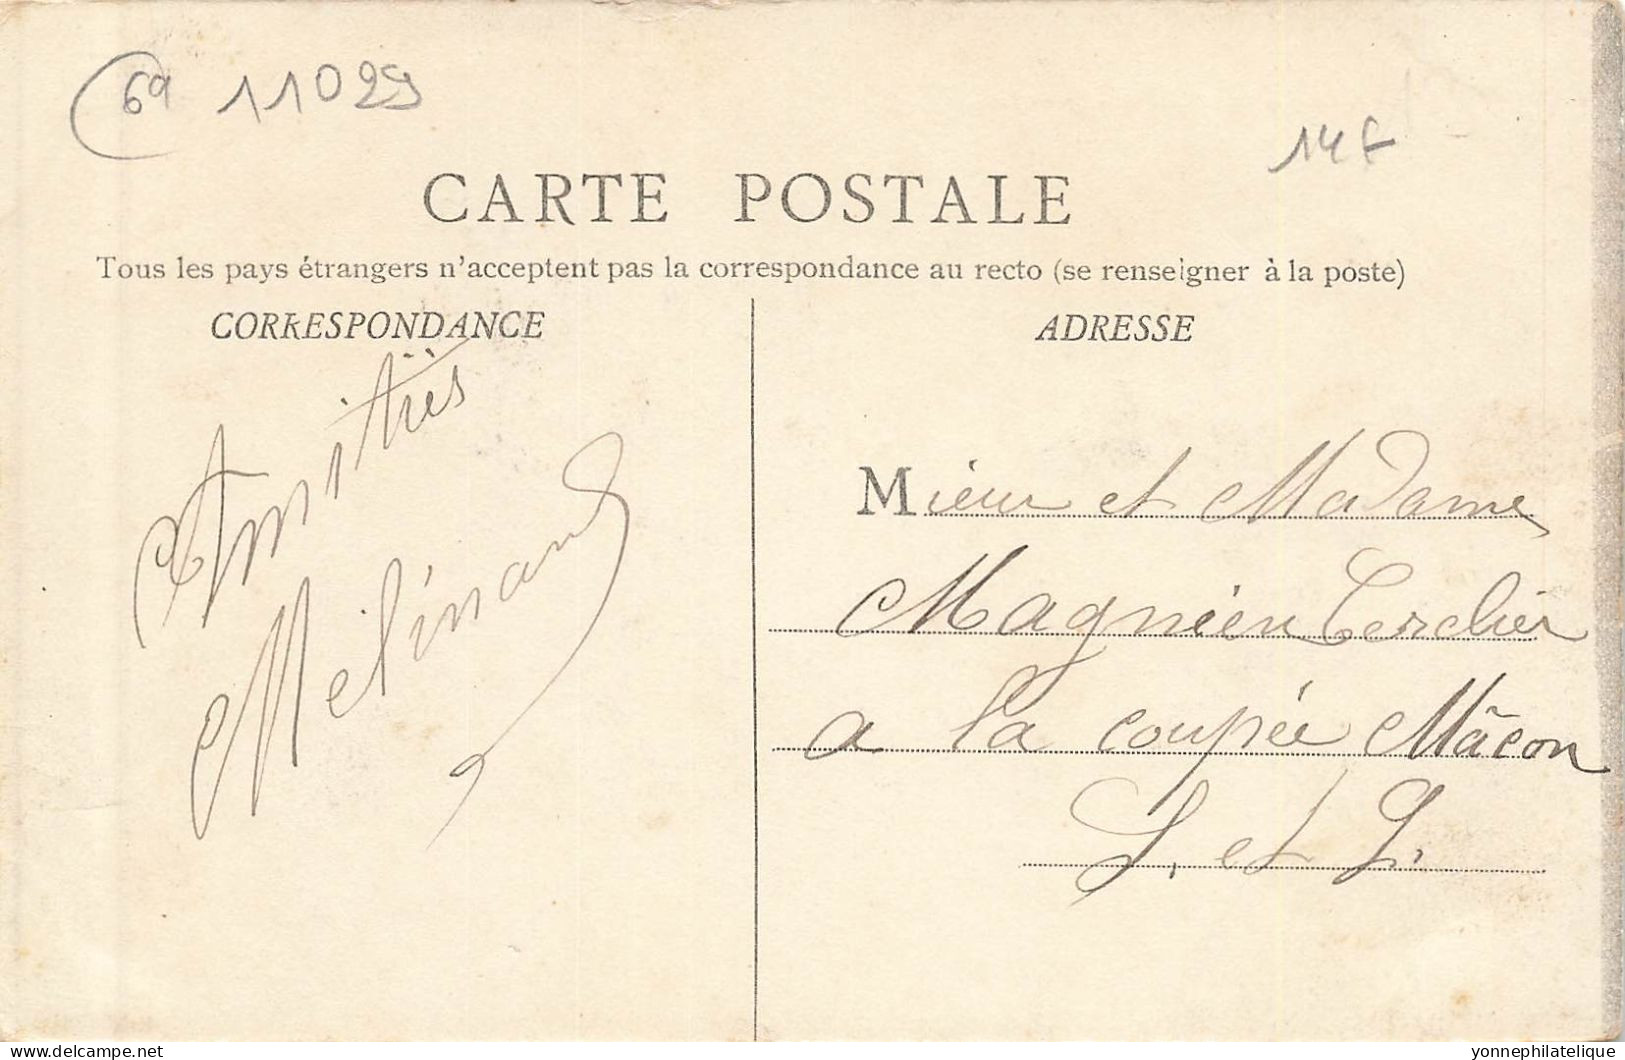 69 11029
14 F
CARTE POSTALE
Tous les pays étrangers n'acceptent pas la correspondance au recto (se renseigner à la poste)
CORRESPONDANCE
Amitiés
Mélinand
ADRESSE
Mieur et Madame
Magnien Terclier
a la coupée Mâcon
S. et L.
Delcampe.net
yonnephilatelique